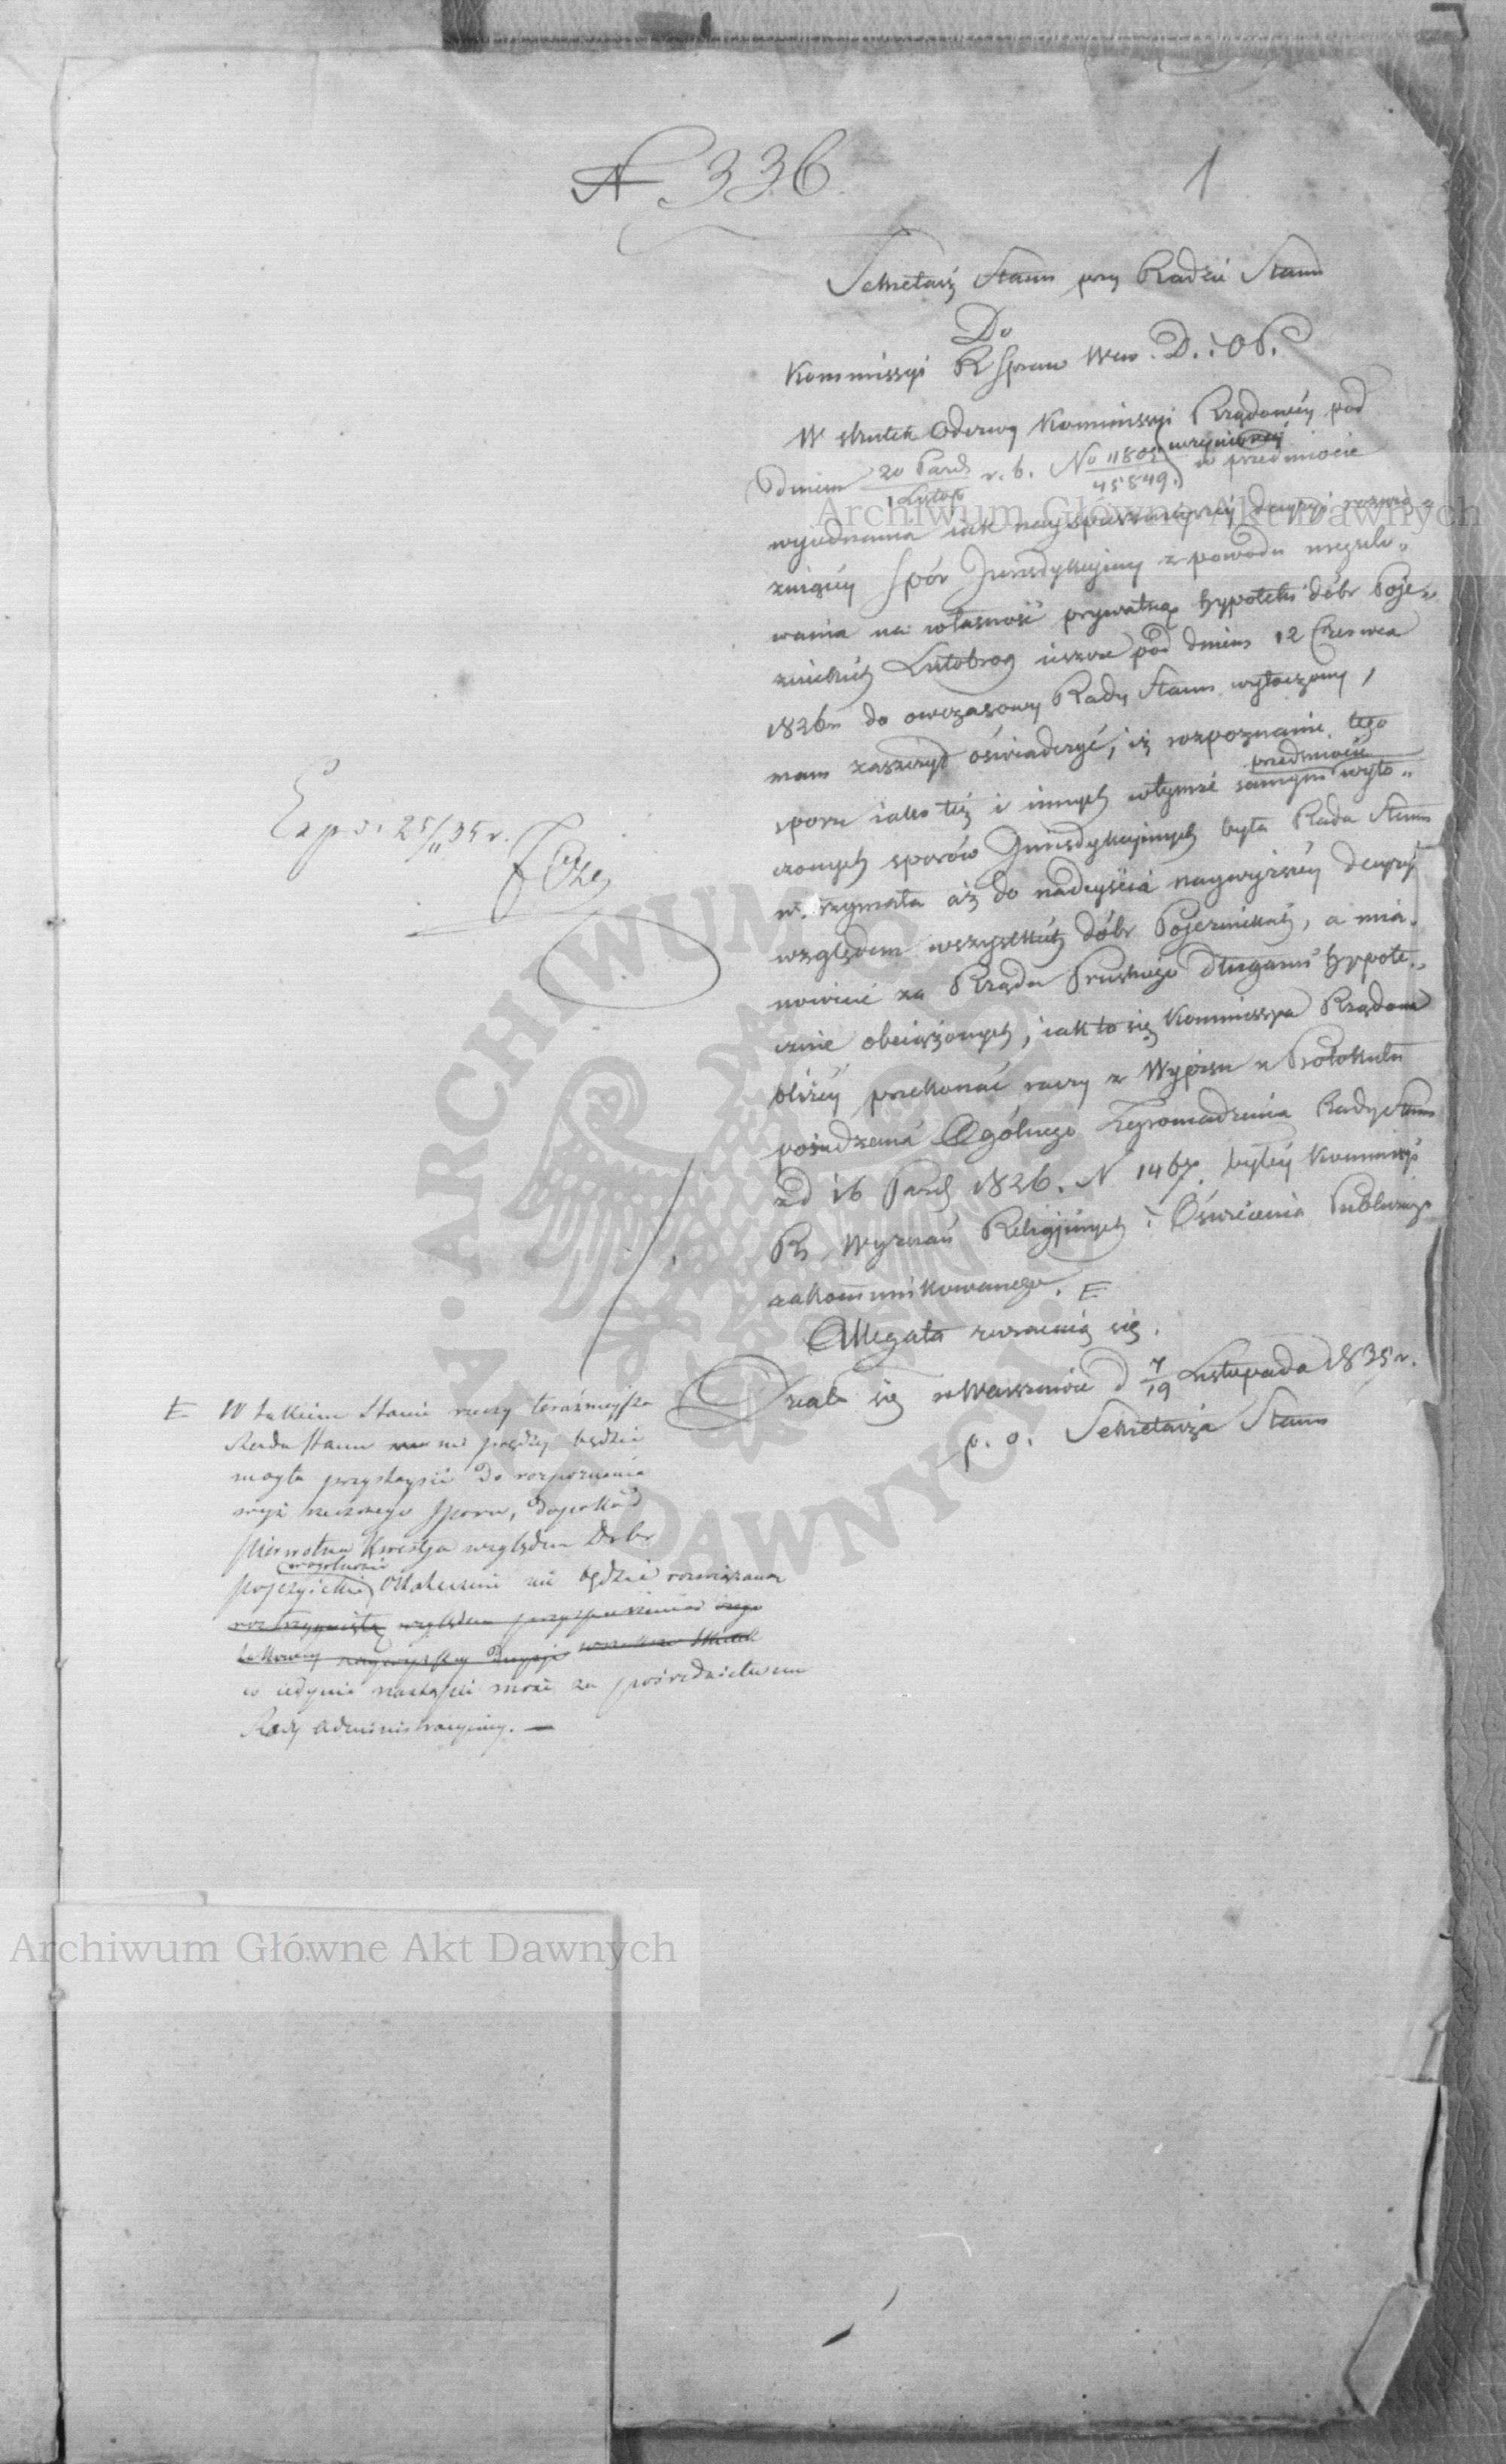 N 336.
1
Sekretarz Stanu przy Radzie Stanu
Do
Kommissyi R Spraw Wew. D. i OP.
W skutek Odezwy Kommissyi Rządowéy pod
dniem 20 Paźd / 1 Listop r. b. No 11805 / 45849. uczynionéy w przedmiocie
wyiednania iak nayspiesznieyszéy decyzyi rozwią-
zuiącéy Spór Jurisdykcyiny z powodu uregulo-
wania na własność prywatną hypoteki dóbr Poje-
zuickich Lutobrog ieszcze pod dniem 12 Czerwca
1826 r. do owczasowéy Rady Stanu wytoczony,
mam zaszczyt oświadczyć, iż rozpoznanie tego
sporu iako téż i innych w tymże samym przedmiocie wyto-
czonych sporów Jurisdykcyinych była Rada Stanu
wstrzymała aż do nadeyścia naywyższéy decyzyi
względem wszystkich dóbr Pojezuickich, a mia-
nowicie za Rządu Pruskiego długami hypote-
cznie obciążonych, iak to się Kommissya Rządowa
bliżéy przekonać raczy z Wypisu z Protokułu
posiedzenia Ogólnego Zgromadzenia Rady Stanu
z d 16 Paźd 1826. N 1467. byłéy Kommissyi
R. Wyznań Religijnych i Oświecenia Publicznego
zakommunikowanego. E
Allegata zwracaią się.
Działo się w Warszawie d 7/19 Listopada 1835 r.
p. o. Sekretarza Stanu
Exp. d. 25/11 35 r.
E W takim Stanie rzeczy teraźnieysza
Rada Stanu nie prędzéy będzie
mogła przystąpić do rozpoznania
wyż rzeczonego Sporu, dopokąd
pierwotna kwestya względem Dóbr
pojezuickich w ogólności ostatecznie nie będzie rozwiązana
roztrzygnięta względem przyspieszenia czego
takowéy naywyższéy decyzyi wszakże skutek
co iedynie nastąpić może za pośrednictwem
Rady Administracyinéy. —
Archiwum Główne Akt Dawnych
Archiwum Główne Akt Dawnych
ARCHIWUM GŁÓWNE AKT DAWNYCH